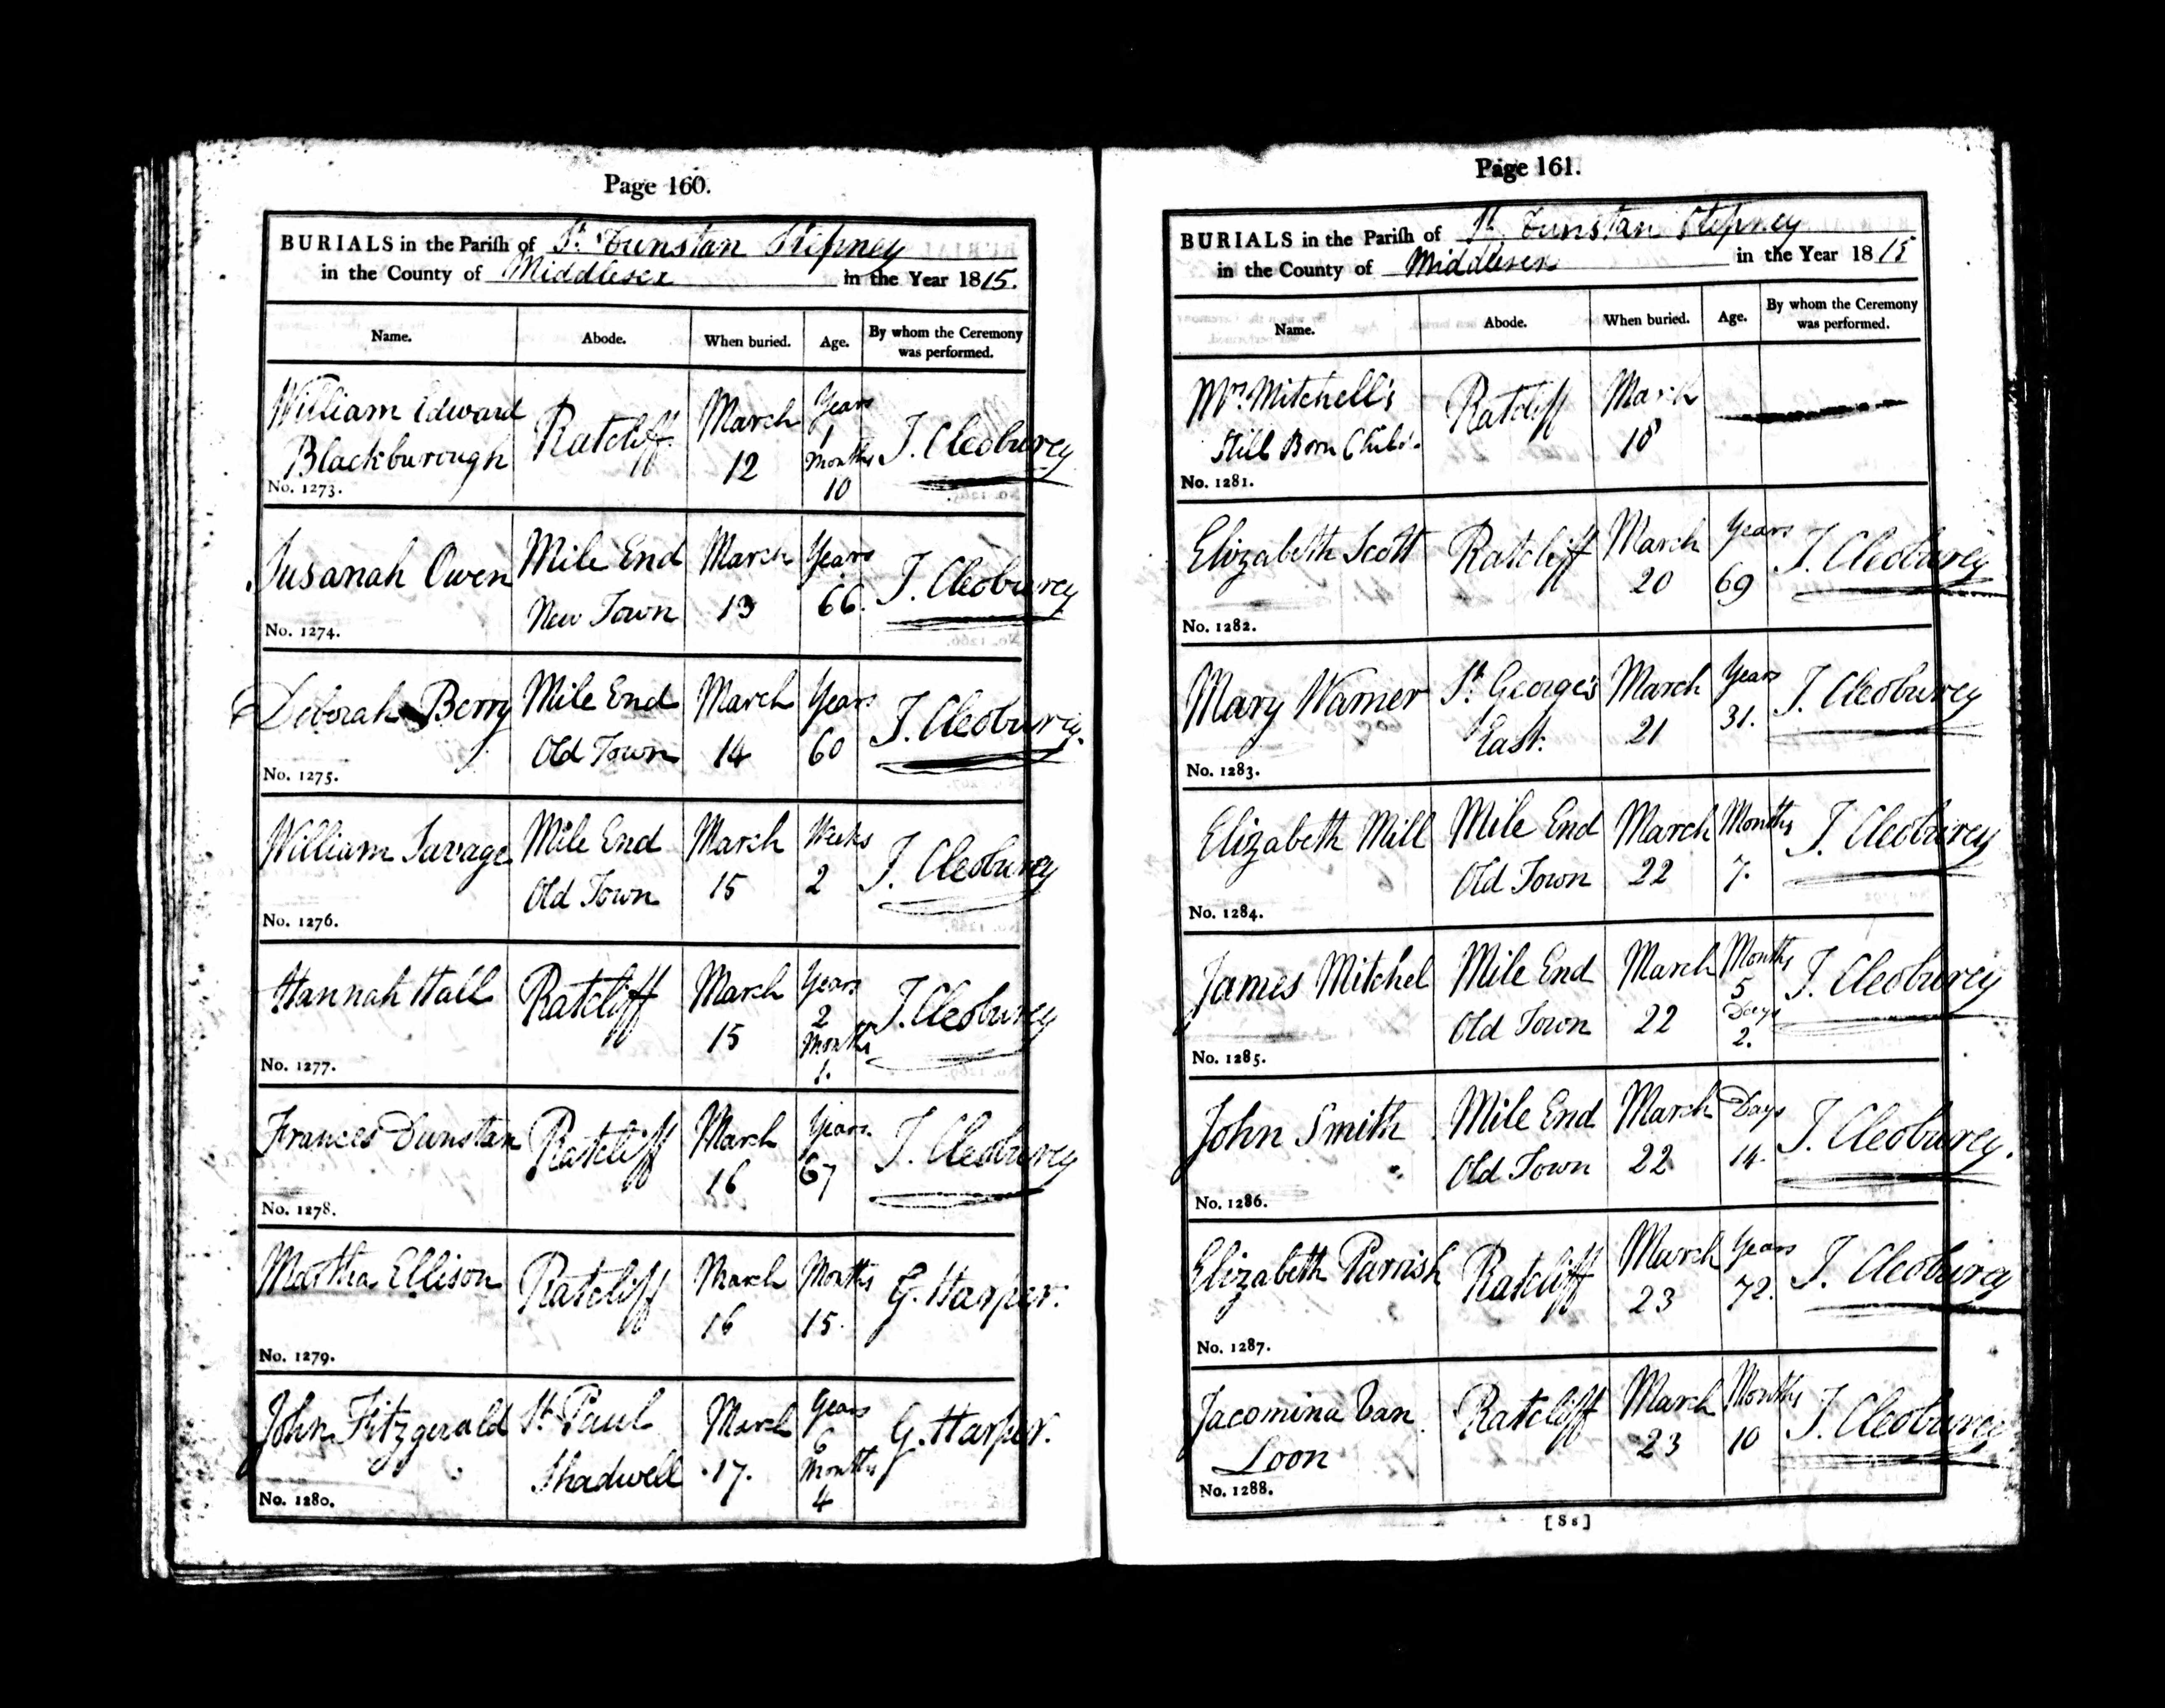 Page 160.
BURIALS in the Parish of St. Dunstan Stepney
in the County of Middlesex in the Year 1815.
Name. Abode. When buried. Age. By whom the Ceremony was performed.
William Edward Ratcliff March Years J. Cleoburey
Blackburough 12 1
Months
10
No. 1273.
Susanah Owen Mile End March Years J. Cleoburey
New Town 13 66.
No. 1274.
Deborah Berry Mile End March Years J. Cleoburey.
Old Town 14 60
No. 1275.
William Savage Mile End March Weeks J. Cleoburey
Old Town 15 2
No. 1276.
Hannah Hall Ratcliff March Years J. Cleoburey
15 2
Months
1.
No. 1277.
Frances Dunstan Ratcliff March Years J. Cleoburey
16 67
No. 1278.
Martha Ellison Ratcliff March Months G. Harper.
16 15.
No. 1279.
John Fitzgerald St. Paul March Years G. Harper.
Shadwell 17. 6
Months
4
No. 1280.
Page 161.
BURIALS in the Parish of St. Dunstan Stepney
in the County of Middlesex in the Year 1815
Name. Abode. When buried. Age. By whom the Ceremony was performed.
Mrs. Mitchell's Ratcliff March
Still Born Child. 18
No. 1281.
Elizabeth Scott Ratcliff March Years J. Cleoburey
20 69
No. 1282.
Mary Warner St. George's March Years J. Cleoburey
East. 21 31.
No. 1283.
Elizabeth Mill Mile End March Months J. Cleoburey
Old Town 22 7.
No. 1284.
James Mitchel Mile End March Months J. Cleoburey
Old Town 22 5
Days
2.
No. 1285.
John Smith Mile End March Days J. Cleoburey.
Old Town 22 14.
No. 1286.
Elizabeth Parrish Ratcliff March Years J. Cleoburey
23 72.
No. 1287.
Jacomina Van Ratcliff March Months J. Cleoburey
Loon 23 10
No. 1288.
[S s]